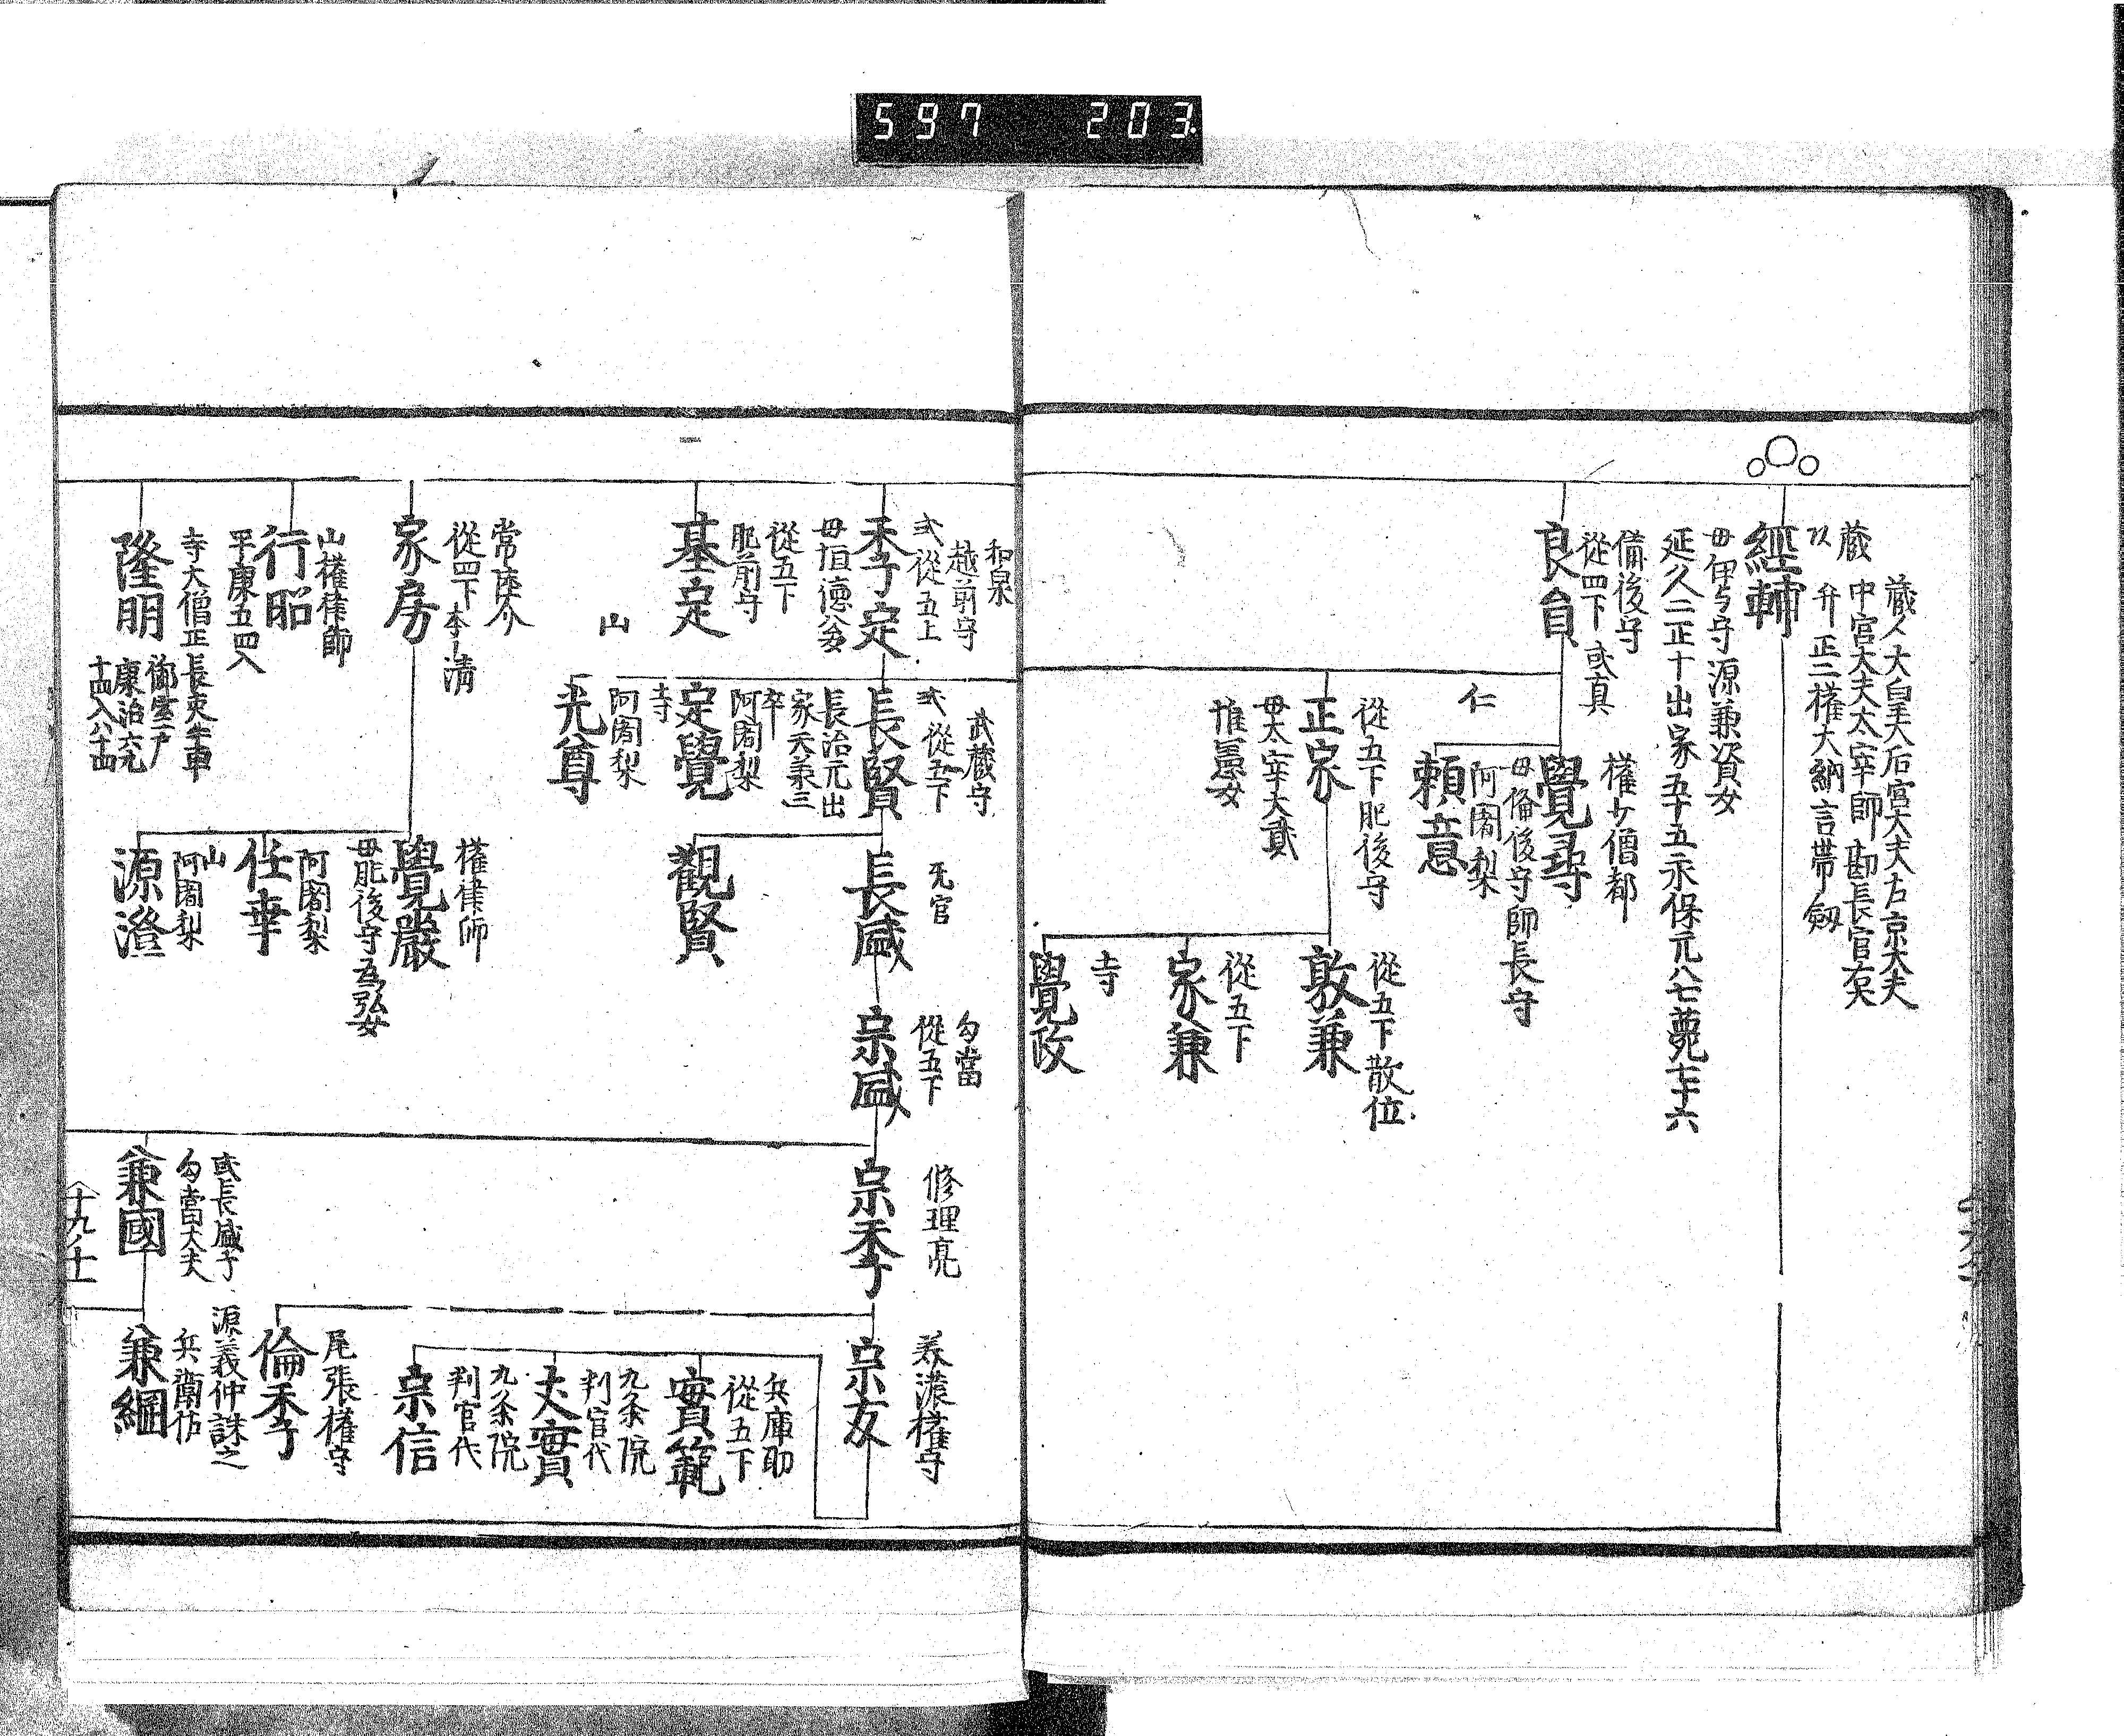 597 203
蔵人大皇太后宮大夫右京大夫
蔵 中宮大夫太宰師勘長官右大
以 弁正二権大納言帯剱
經輔
母伊与守源兼資女
延久二正十出家五十五永保元八七薨七十六
備後守
従四下 或真
良貟
権少僧都
覺尋
母倫後守師長守
阿闍梨
仁
頼意
従五下肥後守
正家
母太宰大貳
惟憲女
従五下散位
敦兼
従五下
家兼
寺
覺政
和泉
越前守
弍従五上
季定
母恒徳公女
武蔵守
弍従五下
長賢
長治元出
家天養三
卒
无官
長盛
勾當
従五下
宗盛
修理亮
宗季
美濃権守
宗友
兵庫助
従五下
實範
九条院
判官代
九条院
判官代
宗信
尾張権守
倫季
阿闍梨
定覺
寺
阿闍梨
光尊
山
觀賢
従五下
肥前守
基定
常陸介
従四下 本ー清
家房
権律師
覺嚴
母肥後守為弘女
阿闍梨
任幸
山
阿闍梨
源澄
山権律師
行昭
平康五四入
寺大僧正長吏牛車
隆明
或長盛子
勾當大夫
兼國
源義仲誅之
兵衛佐
兼綱
十九ノ十一